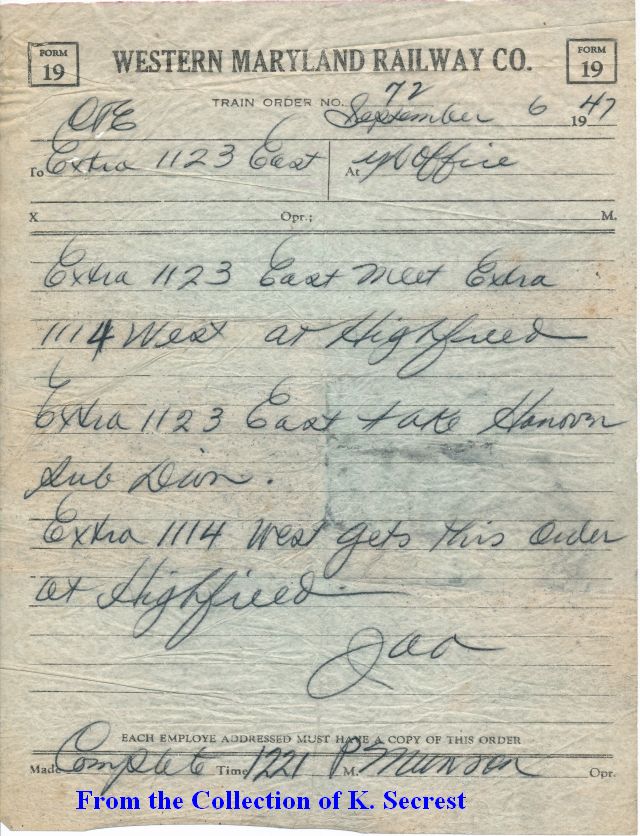 FORM 19 WESTERN MARYLAND RAILWAY CO. FORM 19
TRAIN ORDER NO. 72
September 6 1947
To Extra 1123 East At Office
X Opr.; M.
Extra 1123 East meet Extra
1114 West at Highfield
Extra 1123 East take Hanover
Sub Divn.
Extra 1114 West gets this order
at Highfield
EACH EMPLOYE ADDRESSED MUST HAVE A COPY OF THIS ORDER
Made Complete Time 1221 P M. Munson Opr.
From the Collection of K. Secrest